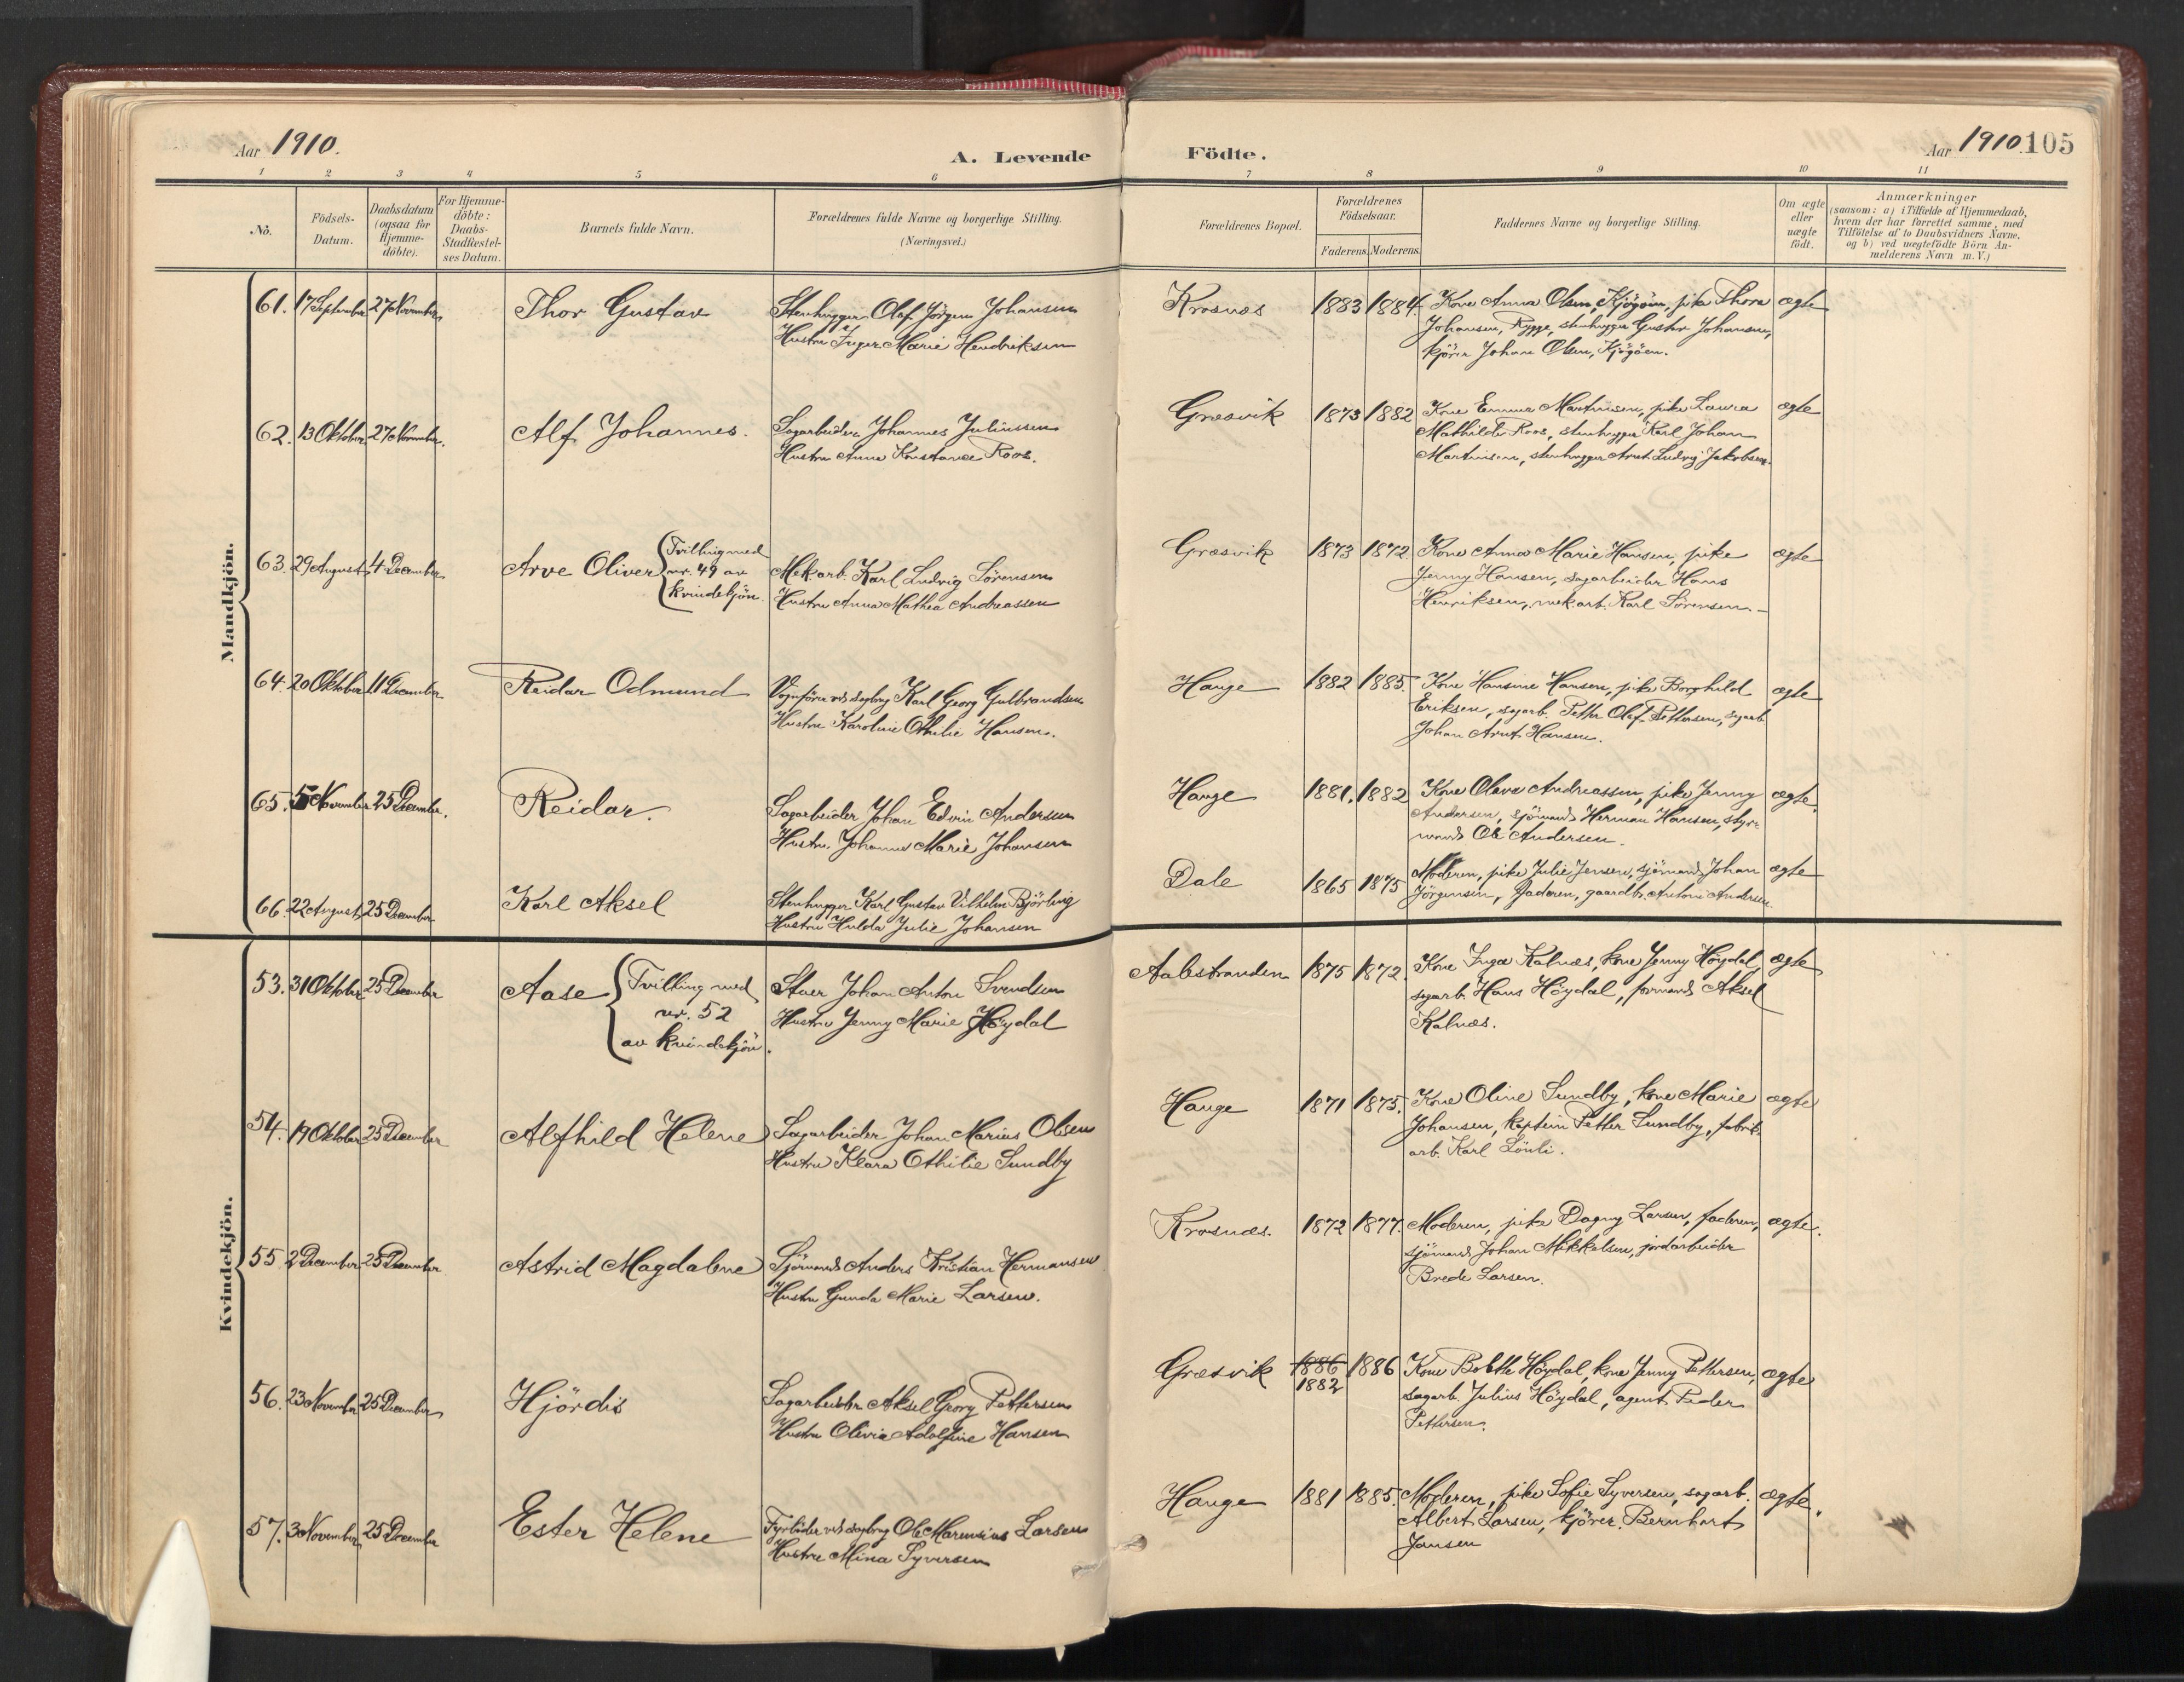 Aar 1910.
A. Levende
Födte.
Aar 1910. 105
1 2 3 4 5 6 7 8 9 10 11
No.
Födsels-
Datum.
Daabsdatum
(ogsaa for
Hjemme-
döbte).
For Hjemme-
döbte:
Daabs-
Stadfæstel-
ses Datum.
Barnets fulde Navn.
Forældrenes fulde Navne og borgerlige Stilling.
(Næringsvei.)
Forældrenes Bopæl.
Forældrenes
Födselsaar.
Faderens. Moderens.
Faddernes Navne og borgerlige Stilling.
Om ægte
eller
uægte
födt.
Anmærkninger
(saasom: a) i Tilfælde af Hjemmedaab,
hvem der har forrettet samme, med
Tilföielse af to Daabsvidners Navne.
og b) ved uægtefödte Börn An-
melderens Navn m. V.)
Mandkjön.
61. 17 September 27 November Thor Gustav
Stenhugger Olaf Jörgen Johansen
Hustru Inger Marie Hendriksen
Krosnæs 1883 1884.
Kone Anna Olsen, Kjøgöen, pike Thora
Johansen, Rygge, stenhugger Gustav Johansen,
kjörer Johan Olsen, Kjøgöen.
ægte
62. 13 Oktober 27 November. Alf Johannes.
Sagarbeider Johannes Juliussen
Hustru Anna Konstance Roos.
Græsvik 1873 1882
Kone Emma Martinsen, pike Laura
Mathilde Roos, stenhugger Karl Johan
Martinsen, stenhugger Arnt Ludvig Jakobsen.
ægte
63. 29 August 4 December Arve Oliver
Tvilling med
nr. 49 av
kvindekjön.
Mek. arb. Karl Ludvig Sörensen
Hustru Anna Mathea Andreassen
Græsvik 1873 1872.
Kone Anna Marie Hansen, pike
Jenny Hansen, sagarbeider Hans
Henriksen, mek. arb. Karl Sörensen.
ægte
64. 20 Oktober 11 December Reidar Odmund
Vognförer ved sagbrug Karl Georg Gulbrandsen
Hustru Karoline Othilie Hansen.
Hauge 1882 1885.
Kone Hansine Hansen, pike Borghild
Eriksen, sagarb. Petter Olaf Pettersen, sagarb.
Johan Arnt Hansen.
ægte
65. 5 November 25 December. Reidar.
Sagarbeider Johan Edvin Andersen
Hustru Johanne Marie Johansen
Hauge 1881. 1882
Kone Olava Andreassen, pike Jenny
Andersen, sjömand Herman Hansen, styr-
mand Ole Andersen.
ægte.
66. 22 August 25 December Karl Aksel
Stenhugger Karl Gustav Vilhelm Björling
Hustru Hulda Julie Johansen
Dale 1865 1875
Moderen, pike Julie Jensen, sjömand Johan
Jörgensen, Faderen, gaardbr. Anton Andersen.
ægte
Kvindekjön.
53. 31 Oktober 25 December Aase
Tvilling med
nr. 52
av kvindekjön.
Stuer Johan Anton Svendsen
Hustru Jenny Marie Höydal
Aalestranden 1875 1872.
Kone Inga Kalnæs, kone Jenny Höydal,
sagarb. Hans Höydal, formand Aksel
Kalnæs.
ægte
54. 19 Oktober 25 December Alfhild Helene
Sagarbeider Johan Marius Olsen
Hustru Klara Othilie Sundby
Hauge 1871 1875.
Kone Oline Sundby, kone Marie
Johansen, kaptein Petter Sundby, fabrik-
arb. Karl Lönli.
ægte
55. 2 December 25 December Astrid Magdalene
Sjömand Anders Kristian Hermansen
Hustru Gunda Marie Larsen.
Krosnæs. 1872 1877.
Moderen, pike Dagny Larsen, faderen,
sjömand Johan Mikkelsen, jordarbeider
Brede Larsen.
ægte.
56. 23 November 25 December Hjördis
Sagarbeider Aksel Georg Pettersen
Hustru Olivia Adolfine Hansen
Græsvik 1886 1886
1882
Kone Bolette Höydal, kone Jenny Pettersen,
sagarb. Julius Höydal, agent Peder
Pettersen.
ægte
57. 3 November 25 December Ester Helene
Fyrböder ved sagbrug Ole Marensius Larsen
Hustru Mina Syversen
Hauge 1881 1885.
Moderen, pike Sofie Syversen, sagarb.
Albert Larsen, kjörer Bernhart
Jansen
ægte.